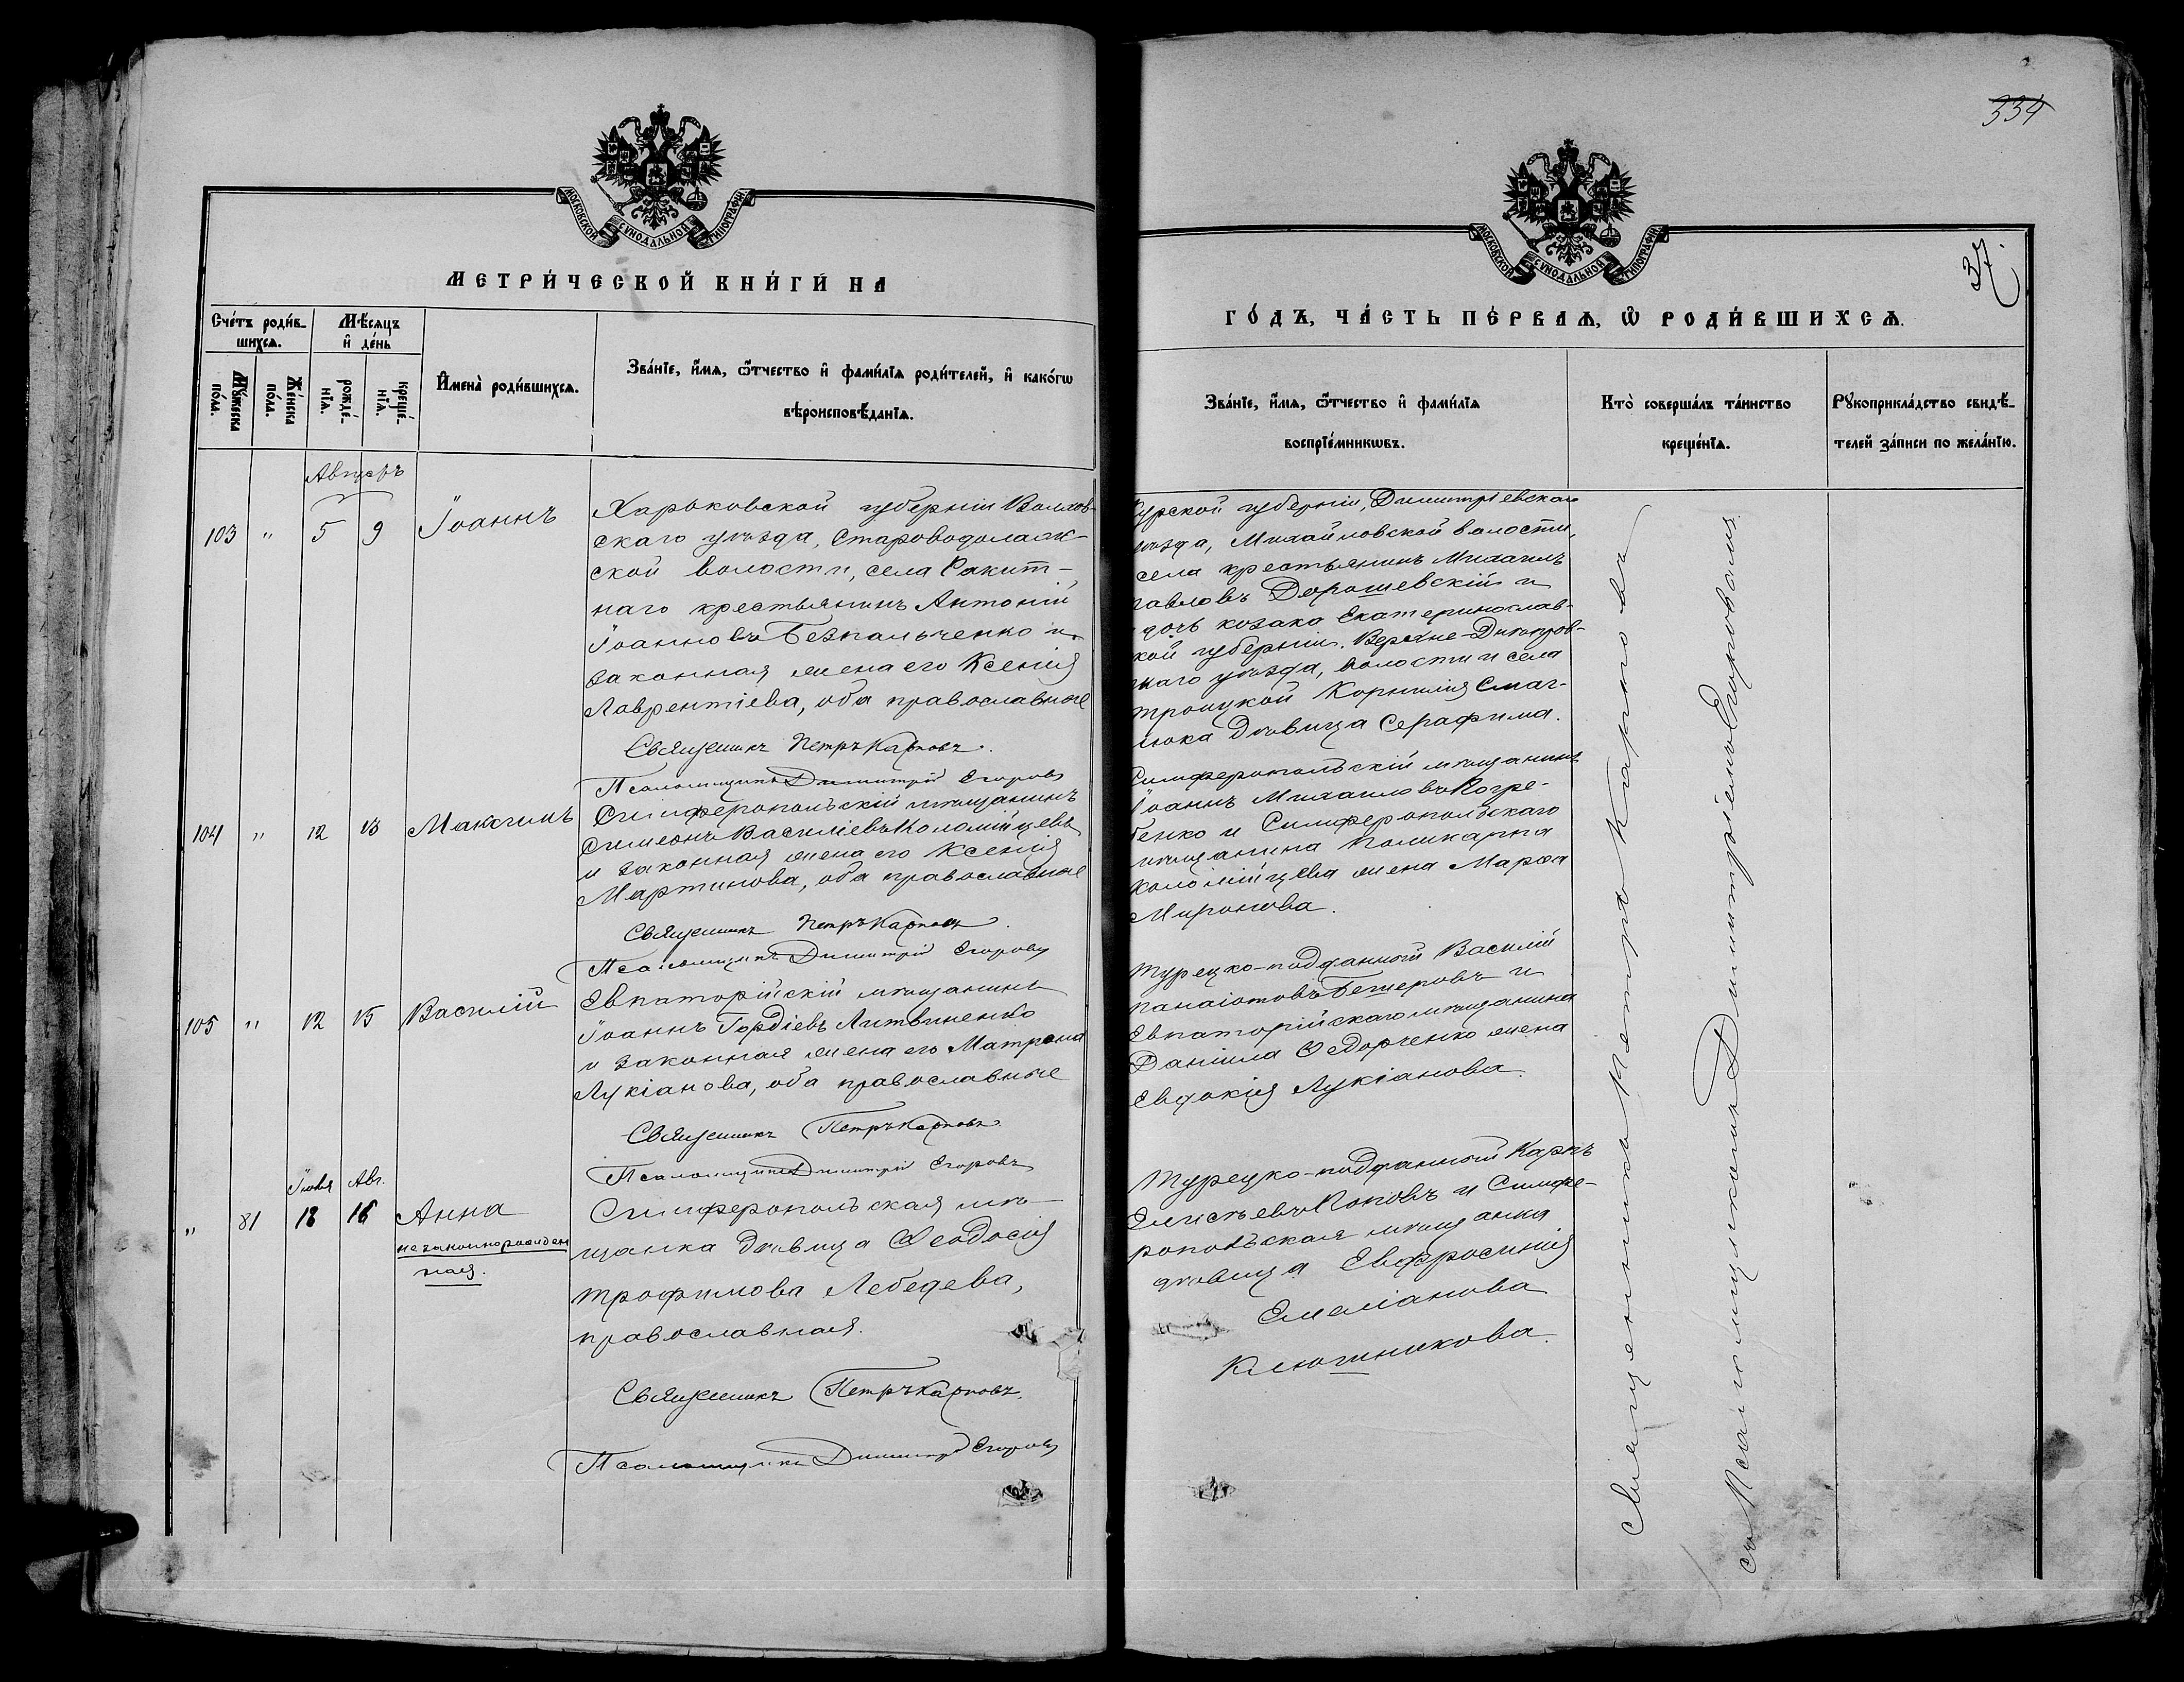 334
37.
МОСКОВСКОЙ СѴНОДАЛЬНОЙ ТИПОГРАФІИ
МЕТРИ́ЧЕСКОЙ КНИ́ГИ НА
Сче́тъ роди́в-
шихсѧ.
Мѣ́сѧцъ
и҆ де́нь
Мꙋ́жеска
по́ла.
Же́нска
по́ла.
рожде́-
нїѧ.
креще́-
нїѧ.
И҆мена̀ роди́вшихсѧ.
Зва́нїе, и҆́мѧ, ѻ҆́тчество и҆ фами́лїѧ роди́телей, и҆ како́гѡ
вѣроисповѣ́данїѧ.
Августъ
103 " 5 9 Іоаннъ
Харьковской губерніи Валков-
скаго уѣзда, Староводолаж-
ской волости, села Ракит-
наго крестьянинъ Антоній
Іоанновъ Безпальченко и
законная жена его Ксенія
Лаврентіева, оба православные
Священникъ Петръ Карповъ.
Псаломщикъ Димитрій Егоровъ
104 " 12 13 Максимъ
Симферопольскій мѣщанинъ
Симеонъ Василіевъ Коломійцевъ
и законная жена его Ксенія
Мартинова, оба православные
Священникъ Петръ Карповъ.
Псаломщикъ Димитрій Егоровъ
105 " 12 15 Василій
Евпаторійскій мѣщанинъ
Іоаннъ Гордіевъ Литвиненко
и законная жена его Матрона
Лукіанова, оба православные
Священникъ Петръ Карповъ.
Псаломщикъ Димитрій Егоровъ
Авг.
" 81 18 16 Анна
незаконнорожден
ная.
Симферопольская мѣ-
щанка дѣвица Ѳеодосія
Трофимова Лебедева,
православная.
Священникъ Петръ Карповъ.
Псаломщикъ Димитрій Егоровъ
МОСКОВСКОЙ СѴНОДАЛЬНОЙ ТИПОГРАФІИ
ГО́ДЪ, ЧА́СТЬ ПЕ́РВАѦ, Ѡ҆ РОДИ́ВШИХСѦ.
Зва́нїе, и҆́мѧ, ѻ҆́тчество и҆ фами́лїѧ
воспрїе́мникѡвъ.
Кто̀ соверша́лъ та́инство
креще́нїѧ.
Рꙋкоприкла́дство свидѣ́-
телей за́писи по жела́нїю.
Курской губерніи, Димитріевскаго
уѣзда, Михайловской волости,
села крестьянинъ Михаилъ
Павловъ Дорошевскій и
дочь козака Екатеринослав-
ской губерніи, Верхне-Днѣпров-
скаго уѣзда, волости и села
Троицкой Корнилія Смаг-
люка дѣвица Серафима.
Симферопольскій мѣщанинъ
Іоаннъ Михаиловъ Погре-
бенко и Симферопольскаго
мѣщанина Поликарпа
Коломійцева жена Марѳа
Миронова.
Турецко-подданный Василій
Панаіотовъ Бешеровъ и
Евпаторійскаго мѣщанина
Даніила Ѳедорченко жена
Евдокія Лукіанова.
Турецко-подданный Карпъ
Елисѣевъ Поповъ и Симфе-
ропольская мѣщанка
дѣвица Евфросинія
Емеліанова
Ключникова.
Священникъ Петръ Карповъ
съ псаломщикомъ Димитріемъ Егоровымъ